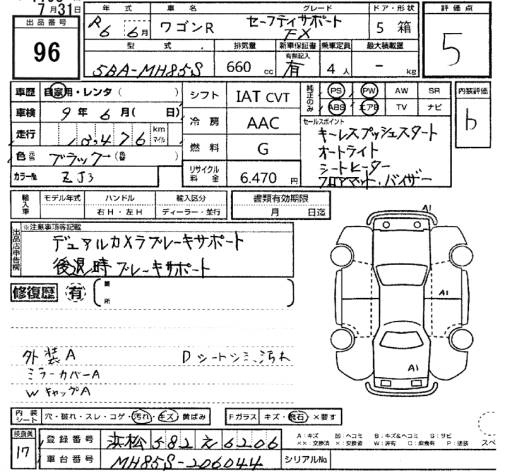 7月31日
出品番号
96
年式
R6 6月
車名
ワゴンR
グレード
セーフティサポート
FX
ドア・形状
5 箱
評価点
5
型式
5BA-MH85S
排気量
660 cc
新車保証書
有無記入
有
乗車定員
4 人
最大積載量
- kg
車歴 自家用・レンタ( )
車検 9年6月( 日)
走行 km マイル
色 元色 ブラック 色替
カラー№ ZJ3
シフト IAT CVT
冷房 AAC
燃料 G
リサイクル料金 6.470円
純正のみ
PS PW AW SR
ABS エアB TV ナビ
セールスポイント
キーレスプッシュスタート
オートライト
シートヒーター
フロアマット、バイザー
内装評価
b
輸入車
モデル年式
ハンドル
右H・左H
輸入区分
ディーラー・並行
書類有効期限
月 日迄
出品店申告欄
※注意事項等記載
デュアルカメラブレーキサポート
後退時ブレーキサポート
修復歴 有 箇所
外装A
ミラーカバーA
WキャップA
Dシートシミ、汚れ
A1
A1
A1
内装シート
穴・破れ・スレ・コゲ・汚れ・キズ・黄ばみ
Fガラス キズ・飛石・×要す
検査員
17
登録番号
浜松 582 え 6206
車台番号 MH85S-206044
シリアル№